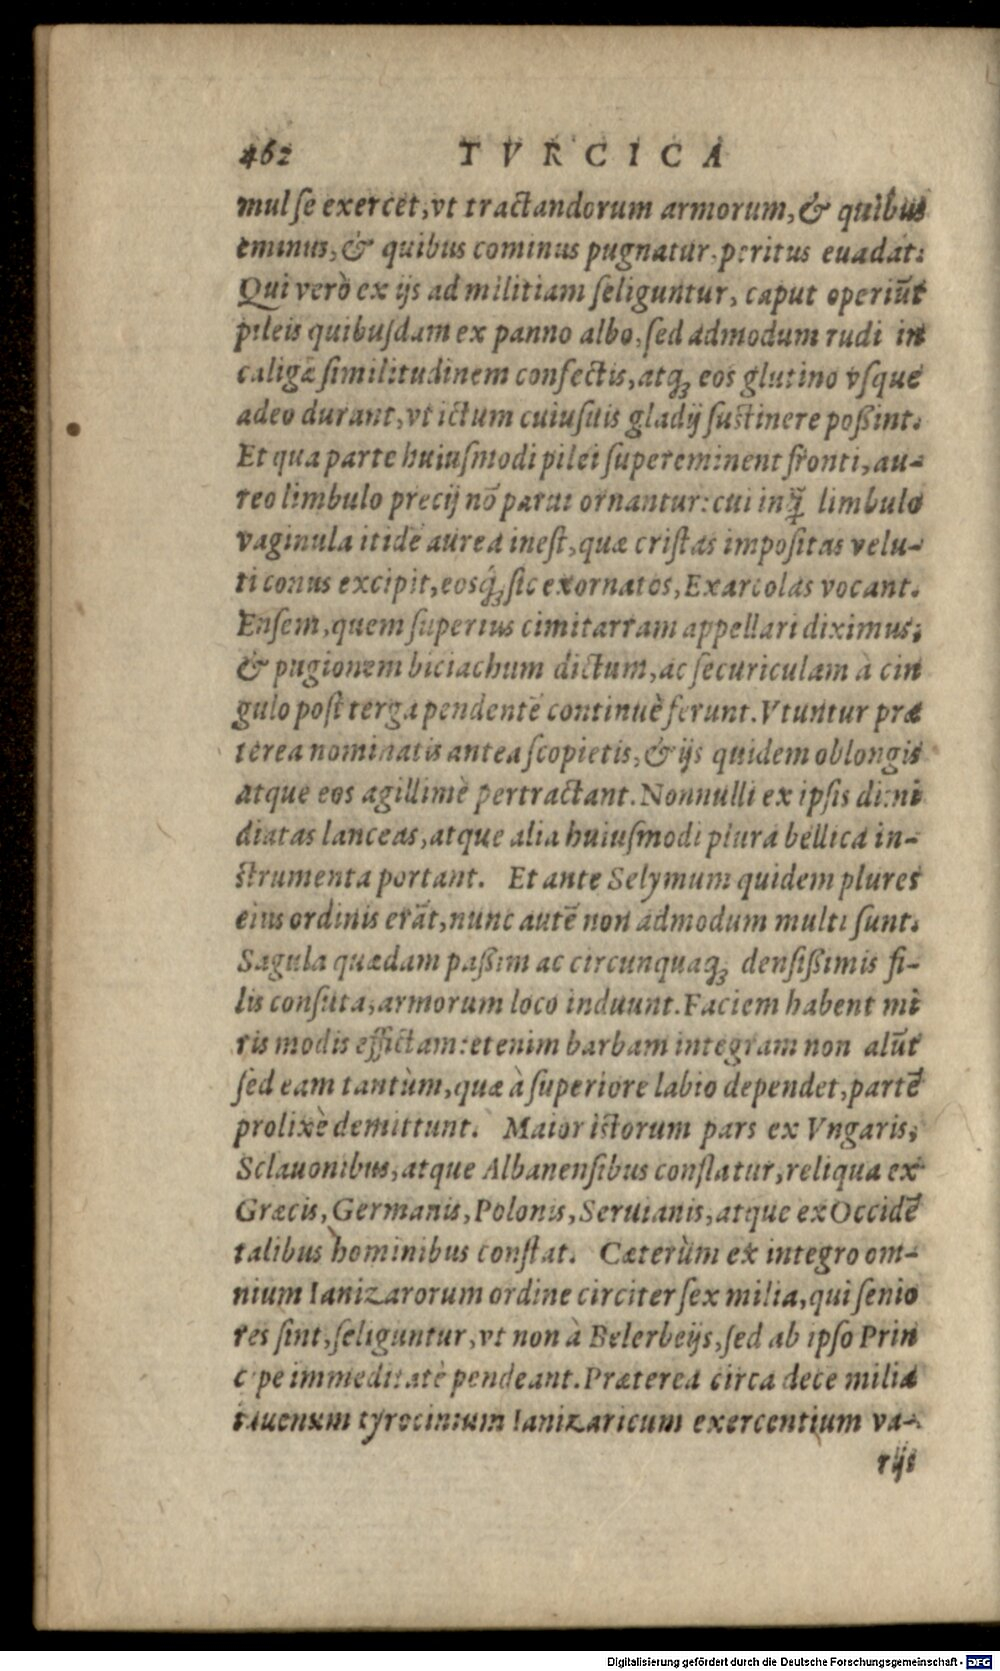 462 TVRCICA
mul se exercet, vt tractandorum armorum, & quibus
eminus, & quibus cominus pugnatur, peritus euadat:
Qui verò ex ijs ad militiam seliguntur, caput operiūt
pileis quibusdam ex panno albo, sed admodum rudi in
caligæ similitudinem confectis, atq; eos glutino vsque
adeo durant, vt ictum cuiusuis gladij sustinere poßint.
Et qua parte huiusmodi pilei supereminent fronti, au-
reo limbulo precij nō parui ornantur: cui inq̄ limbulo
vaginula itidē aurea inest, quæ cristas impositas velu-
ti conus excipit, eosq́; sic exornatos, Exarcolas vocant.
Ensem, quem superius cimitarram appellari diximus;
& pugionem biciachum dictum, ac securiculam à cin
gulo post terga pendentē continuè ferunt. Vtuntur præ
terea nominatis antea scopietis, & ijs quidem oblongis
atque eos agillimè pertractant. Nonnulli ex ipsis dimi
diatas lanceas, atque alia huiusmodi plura bellica in-
strumenta portant. Et ante Selymum quidem plures
eius ordinis erāt, nunc autē non admodum multi sunt.
Sagula quædam paßim ac circunquaq; densißimis fi-
lis consuta, armorum loco induunt. Faciem habent mi
ris modis effictam: etenim barbam integram non alūt
sed eam tantùm, quæ à superiore labio dependet, partē
prolixè demittunt. Maior istorum pars ex Vngaris,
Sclauonibus, atque Albanensibus conflatur, reliqua ex
Græcis, Germanis, Polonis, Seruianis, atque ex Occidē
talibus hominibus constat. Cæterùm ex integro om-
nium Ianizarorum ordine circiter sex milia, qui senio
res sint, seliguntur, vt non à Belerbeijs, sed ab ipso Prin
cipe immediatè pendeant. Præterea circa dece milia
iuuenum tyrocinium Ianizaricum exercentium va-
rijs
Digitalisierung gefördert durch die Deutsche Forschungsgemeinschaft - DFG